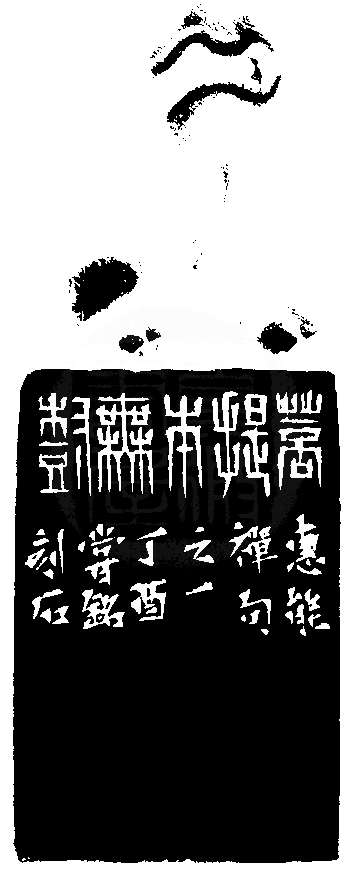 菩提本無樹
惠能
禪句
之一
丁酉
嘗銘
刻石